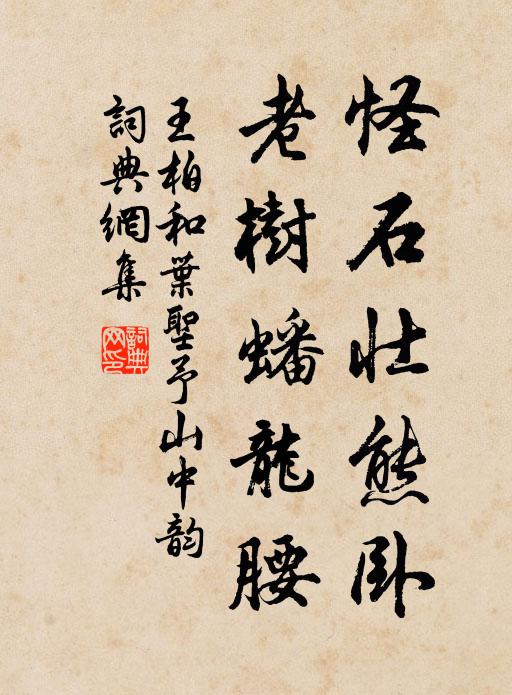 怪石壮熊卧
老樹蟠龍腰
王柏和葉聖予山中韵
詞典網集
詞典網印